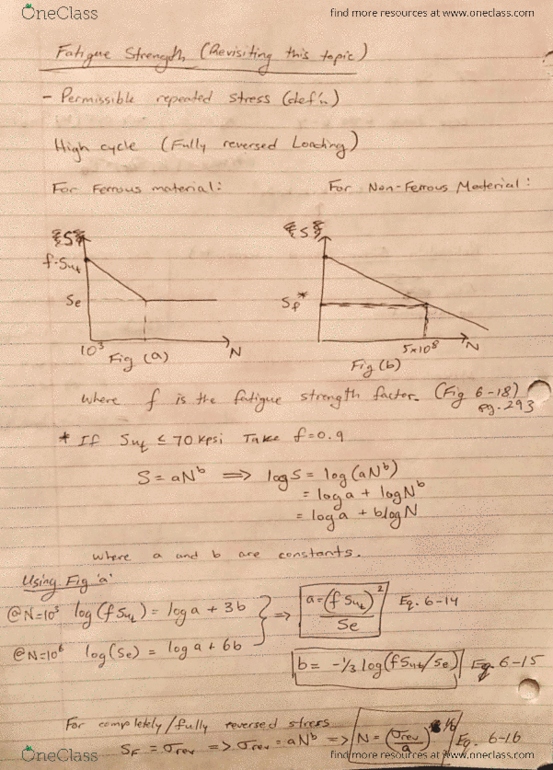 OneClass
find more resources at www.oneclass.com
Fatigue Strength (Revisiting this topic)
- Permissible repeated stress (def'n)
High cycle (Fully reversed Loading)
For Ferrous material:
For Non-Ferrous Material:
S
f·Sut
Se
10³
N
Fig (a)
S
Sf*
5×10⁸
N
Fig (b)
where f is the fatigue strength factor. (Fig 6-18)
pg. 293
* If Sut ≤ 70 kpsi Take f=0.9
S = aN^b ⟹ log S = log(aN^b)
= log a + log N^b
= log a + b log N
where a and b are constants.
Using Fig 'a'
@N=10³ log(f Sut) = log a + 3b
@N=10⁶ log(Se) = log a + 6b
⇒ a = (f Sut)²/Se Eq. 6-14
b = -1/3 log(f Sut/Se) Eq. 6-15
For completely/fully reversed stress
SF = σrev => σrev = aN^b => N = (σrev/a)^1/b Eq. 6-16
OneClass
find more resources at www.oneclass.com